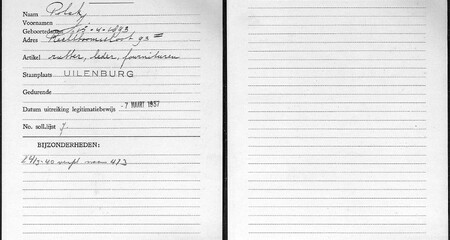 Naam Polak
Voornamen
Geboortedatum -4-1893
Adres 93 III
Artikel rubber, leder, fournituren
Standplaats UILENBURG
Gedurende
Datum uitreiking legitimatiebewijs -7 MAART 1957
No. soll.lijst 7.
BIJZONDERHEDEN:
24/3-40 verpl naar 4/3